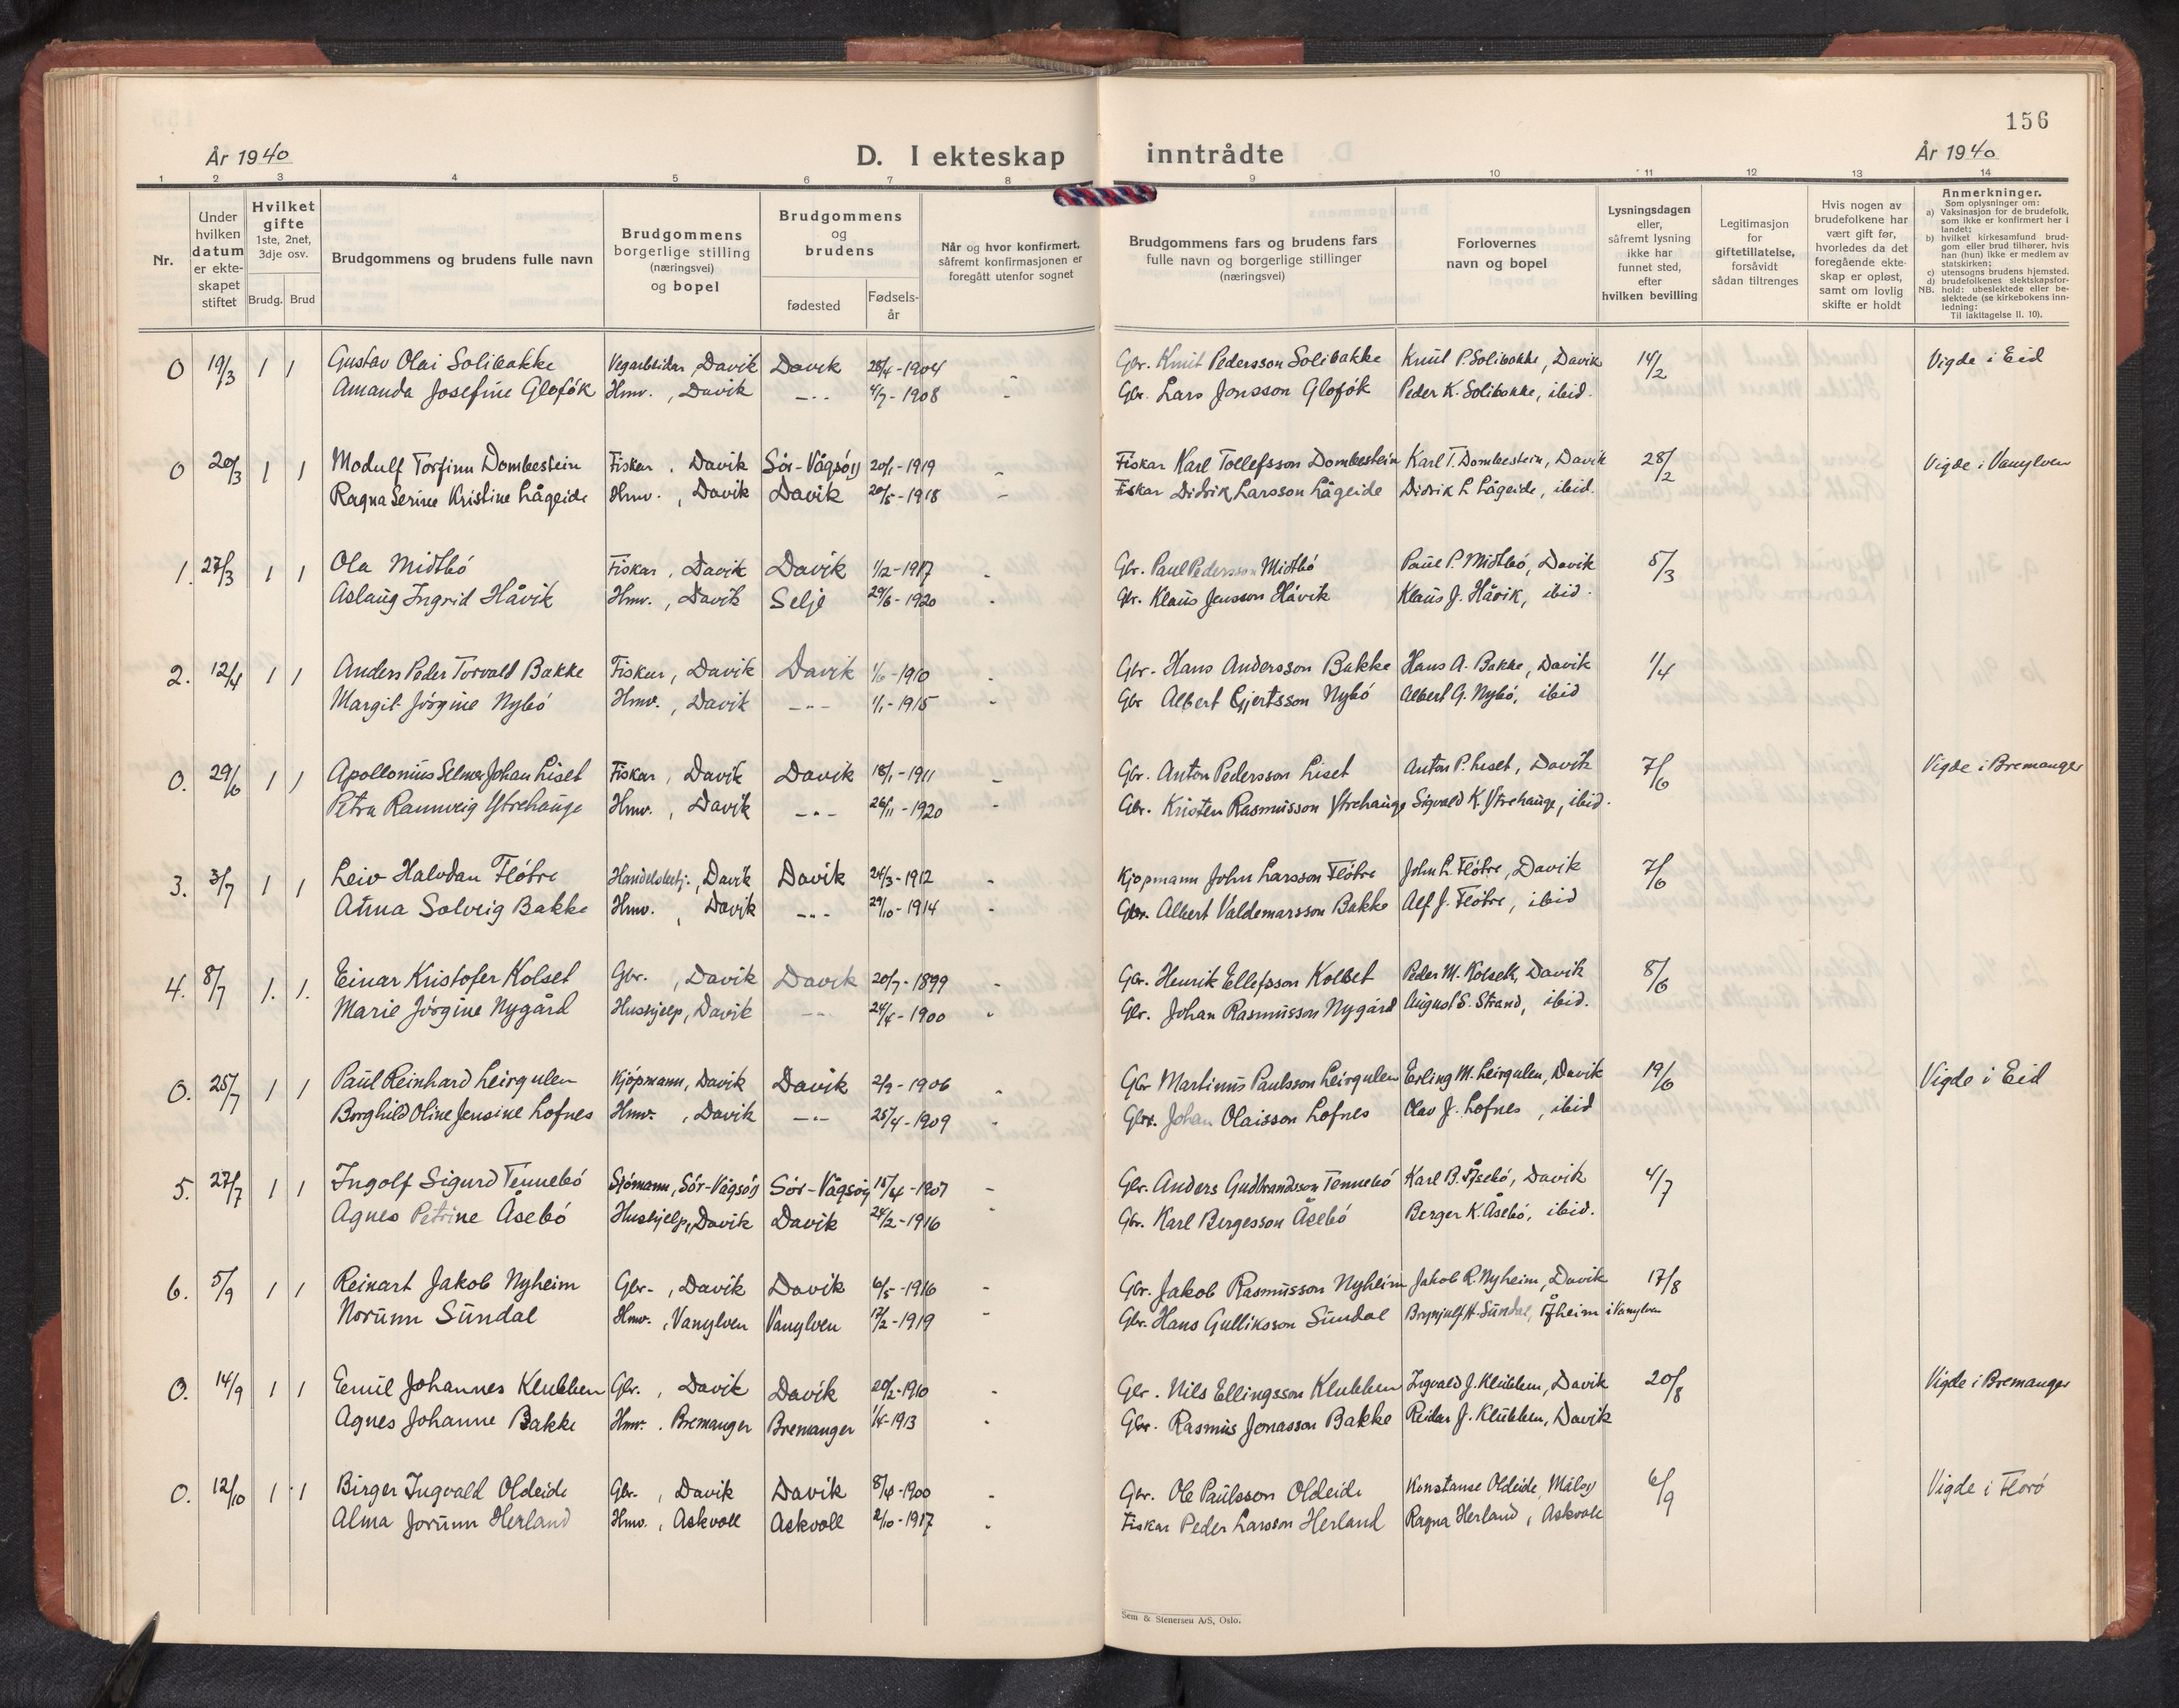 156
År 1940 D. I ekteskap inntrådte År 1940
1 2 3 4 5 6 7 8 9 10 11 12 13 14
Nr.
Under hvilken datum er ekteskapet stiftet
Hvilket gifte 1ste, 2net, 3dje osv.
Brudg. Brud
Brudgommens og brudens fulle navn
Brudgommens borgerlige stilling (næringsvei) og bopel
Brudgommens og brudens
fødested
Fødselsår
Når og hvor konfirmert, såfremt konfirmasjonen er foregått utenfor sognet
Brudgommens fars og brudens fars fulle navn og borgerlige stillinger (næringsvei)
Forlovernes navn og bopel
Lysningsdagen eller, såfremt lysning ikke har funnet sted, efter hvilken bevilling
Legitimasjon for giftetillatelse, forsåvidt sådan tiltrenges
Hvis nogen av brudefolkene har vært gift før, hvorledes da det foregående ekteskap er opløst, samt om lovlig skifte er holdt
Anmerkninger.
Som oplysninger om:
a) Vaksinasjon for de brudefolk, som ikke er konfirmert her i landet;
b) hvilket kirkesamfund brudgom eller brud tilhører, hvis han (hun) ikke er medlem av statskirken;
c) utensogns brudens hjemsted.
d) brudefolkenes slektskapsforhold: ubeslektede eller beslektede (se kirkebokens innledning:
NB.
Til iakttagelse II. 10).
0 19/3 1 1 Gustav Olai Solibakke Vegarbeidar, Davik Davik 28/4-1904 Gbr. Knut Pedersson Solibakke Knut P. Solibakke, Davik 14/2 Vigde i Eid
Amanda Josefine Gloføk Hmv., Davik —"— 4/7-1908 - Gbr. Lars Jonsson Gloføk Peder K. Solibakke, ibid.
0 20/3 1 1 Modulf Torfinn Dombestein Fiskar, Davik Sør-Vågsøy 20/1-1919 - Fiskar Karl Tollefsson Dombestein Karl T. Dombestein, Davik 28/2 Vigde i Vanylven
Ragna Serine Kristine Lågeide Hmv., Davik Davik 20/5-1918 - Fiskar Didrik Larsson Lågeide Didrik L. Lågeide, ibid.
1. 27/3 1 1 Ola Midtbø Fiskar, Davik Davik 1/2-1917 - Gbr. Paul Pedersson Midtbø Paul P. Midtbø, Davik 5/3
Aslaug Ingrid Håvik Hmv., Davik Selje 29/6-1920 - Gbr. Klaus Jensson Håvik Klaus J. Håvik, ibid.
2. 12/4 1 1 Anders Peder Torvald Bakke Fiskar, Davik Davik 1/6-1910 - Gbr. Hans Andersson Bakke Hans A. Bakke, Davik 1/4
Margit Jørgine Nybø Hmv., Davik —"— 1/1-1915 - Gbr Albert Gjertsson Nybø Albert G. Nybø, ibid
0. 29/6 1 1 Apollonius Selmer Johan Liset Fiskar, Davik Davik 18/1-1911 - Gbr. Anton Pedersson Liset Anton P. Liset, Davik 7/6 Vigde i Bremanger
Petra Rannveig Ytrehauge Hmv., Davik —"— 26/11-1920 - Gbr. Kristen Rasmusson Ytrehauge Sigvald K. Ytrehauge, ibid.
3. 3/7 1 1 Leiv Halvdan Fløtre Handelsbetj., Davik Davik 24/3-1912 - Kjøpmann John Larsson Fløtre John L. Fløtre, Davik 7/6
Anna Solveig Bakke Hmv., Davik —"— 29/10-1914 - Gbr. Albert Valdemarsson Bakke Alf J. Fløtre, ibid
4. 8/7 1. 1. Einar Kristofer Kolset Gbr., Davik Davik 20/7-1899 - Gbr. Henrik Ellefsson Kolset Peder M. Kolset, Davik 8/6
Marie Jørgine Nygård Hushjelp, Davik —"— 24/4-1900 - Gbr. Johan Rasmusson Nygård August S. Strand, ibid.
0. 25/7 1 1 Paul Reinhard Leirgulen Kjøpmann, Davik Davik 2/9-1906 - Gbr Martinus Paulsson Leirgulen Erling M. Leirgulen, Davik 19/6 Vigde i Eid
Borghild Oline Jensine Lofnes Hmv., Davik —"— 25/4-1909 - Gbr. Johan Olaisson Lofnes Olav J. Lofnes, ibid
5. 27/7 1 1 Ingolf Sigurd Tennebø Sjømann, Sør-Vågsøy Sør-Vågsøy 15/4-1907 - Gbr. Anders Gudbrandsson Tennebø Karl B. Åsebø, Davik 4/7
Agnes Petrine Åsebø Hushjelp, Davik Davik 24/2-1916 - Gbr. Karl Bergesson Åsebø Berger K. Åsebø, ibid.
6. 5/9 1 1 Reinart Jakob Nyheim Gbr., Davik Davik 6/5-1916 - Gbr. Jakob Rasmusson Nyheim Jakob R. Nyheim, Davik 17/8
Norunn Sundal Hmv., Vanylven Vanylven 17/2-1919 - Gbr. Hans Gulliksson Sundal Brynjulf H. Sundal, Åheim i Vanylven
0. 14/9 1 1 Emil Johannes Klubben Gbr., Davik Davik 20/2-1910 - Gbr. Nils Ellingsson Klubben Ingvald J. Klubben, Davik 20/8 Vigde i Bremanger
Agnes Johanne Bakke Hmv., Bremanger Bremanger 1/5-1913 - Gbr. Rasmus Jonasson Bakke Reidar J. Klubben, Davik
0. 12/10 1 1 Birger Ingvald Oldeide Gbr., Davik Davik 8/4-1900 - Gbr. Ole Paulsson Oldeide Konstanse Oldeide, Måløy 6/9 Vigde i Florø
Alma Jorunn Herland Hmv., Askvoll Askvoll 2/10-1917 - Fiskar Peder Larsson Herland Ragna Herland, Askvoll
Sem & Stenersen A/S, Oslo.